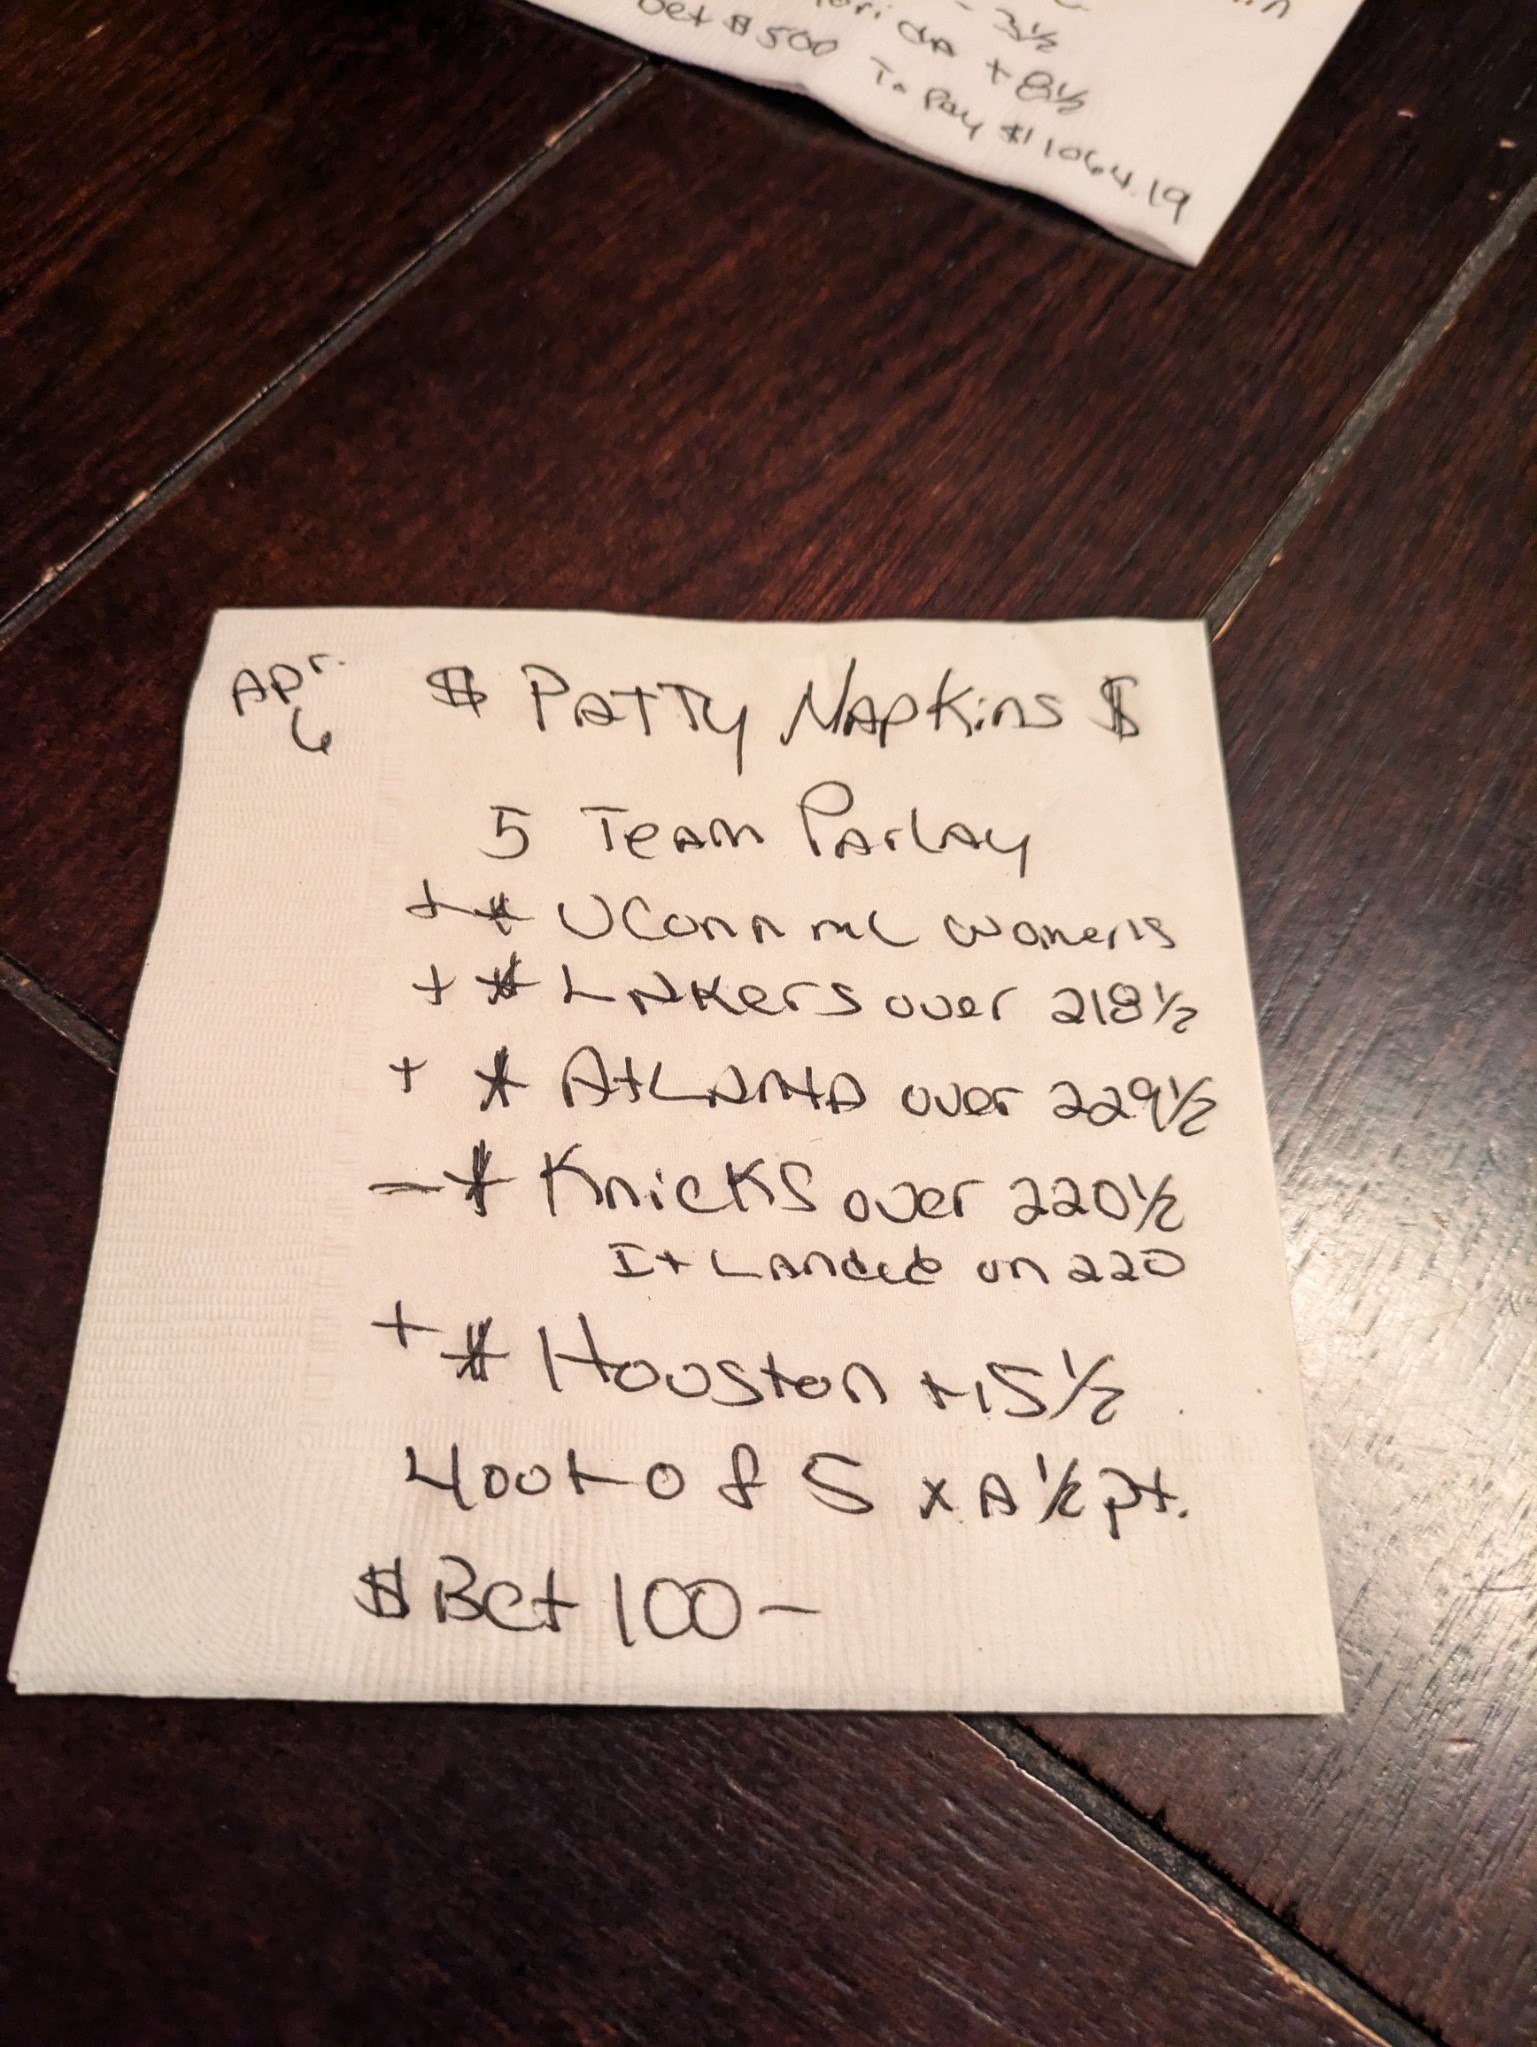 - 3½
+ 8½
bet $500 To Pay $1064.19
Apr. $ Patty Napkins $
6
5 Team Parlay
+ * UConn ML Women's
+ * Lakers over 218½
+ * Atlanta over 229½
- * Knicks over 220½
It Landed on 220
+ * Houston +15½
4 out of 5 x A ½ pt.
$ Bet 100-